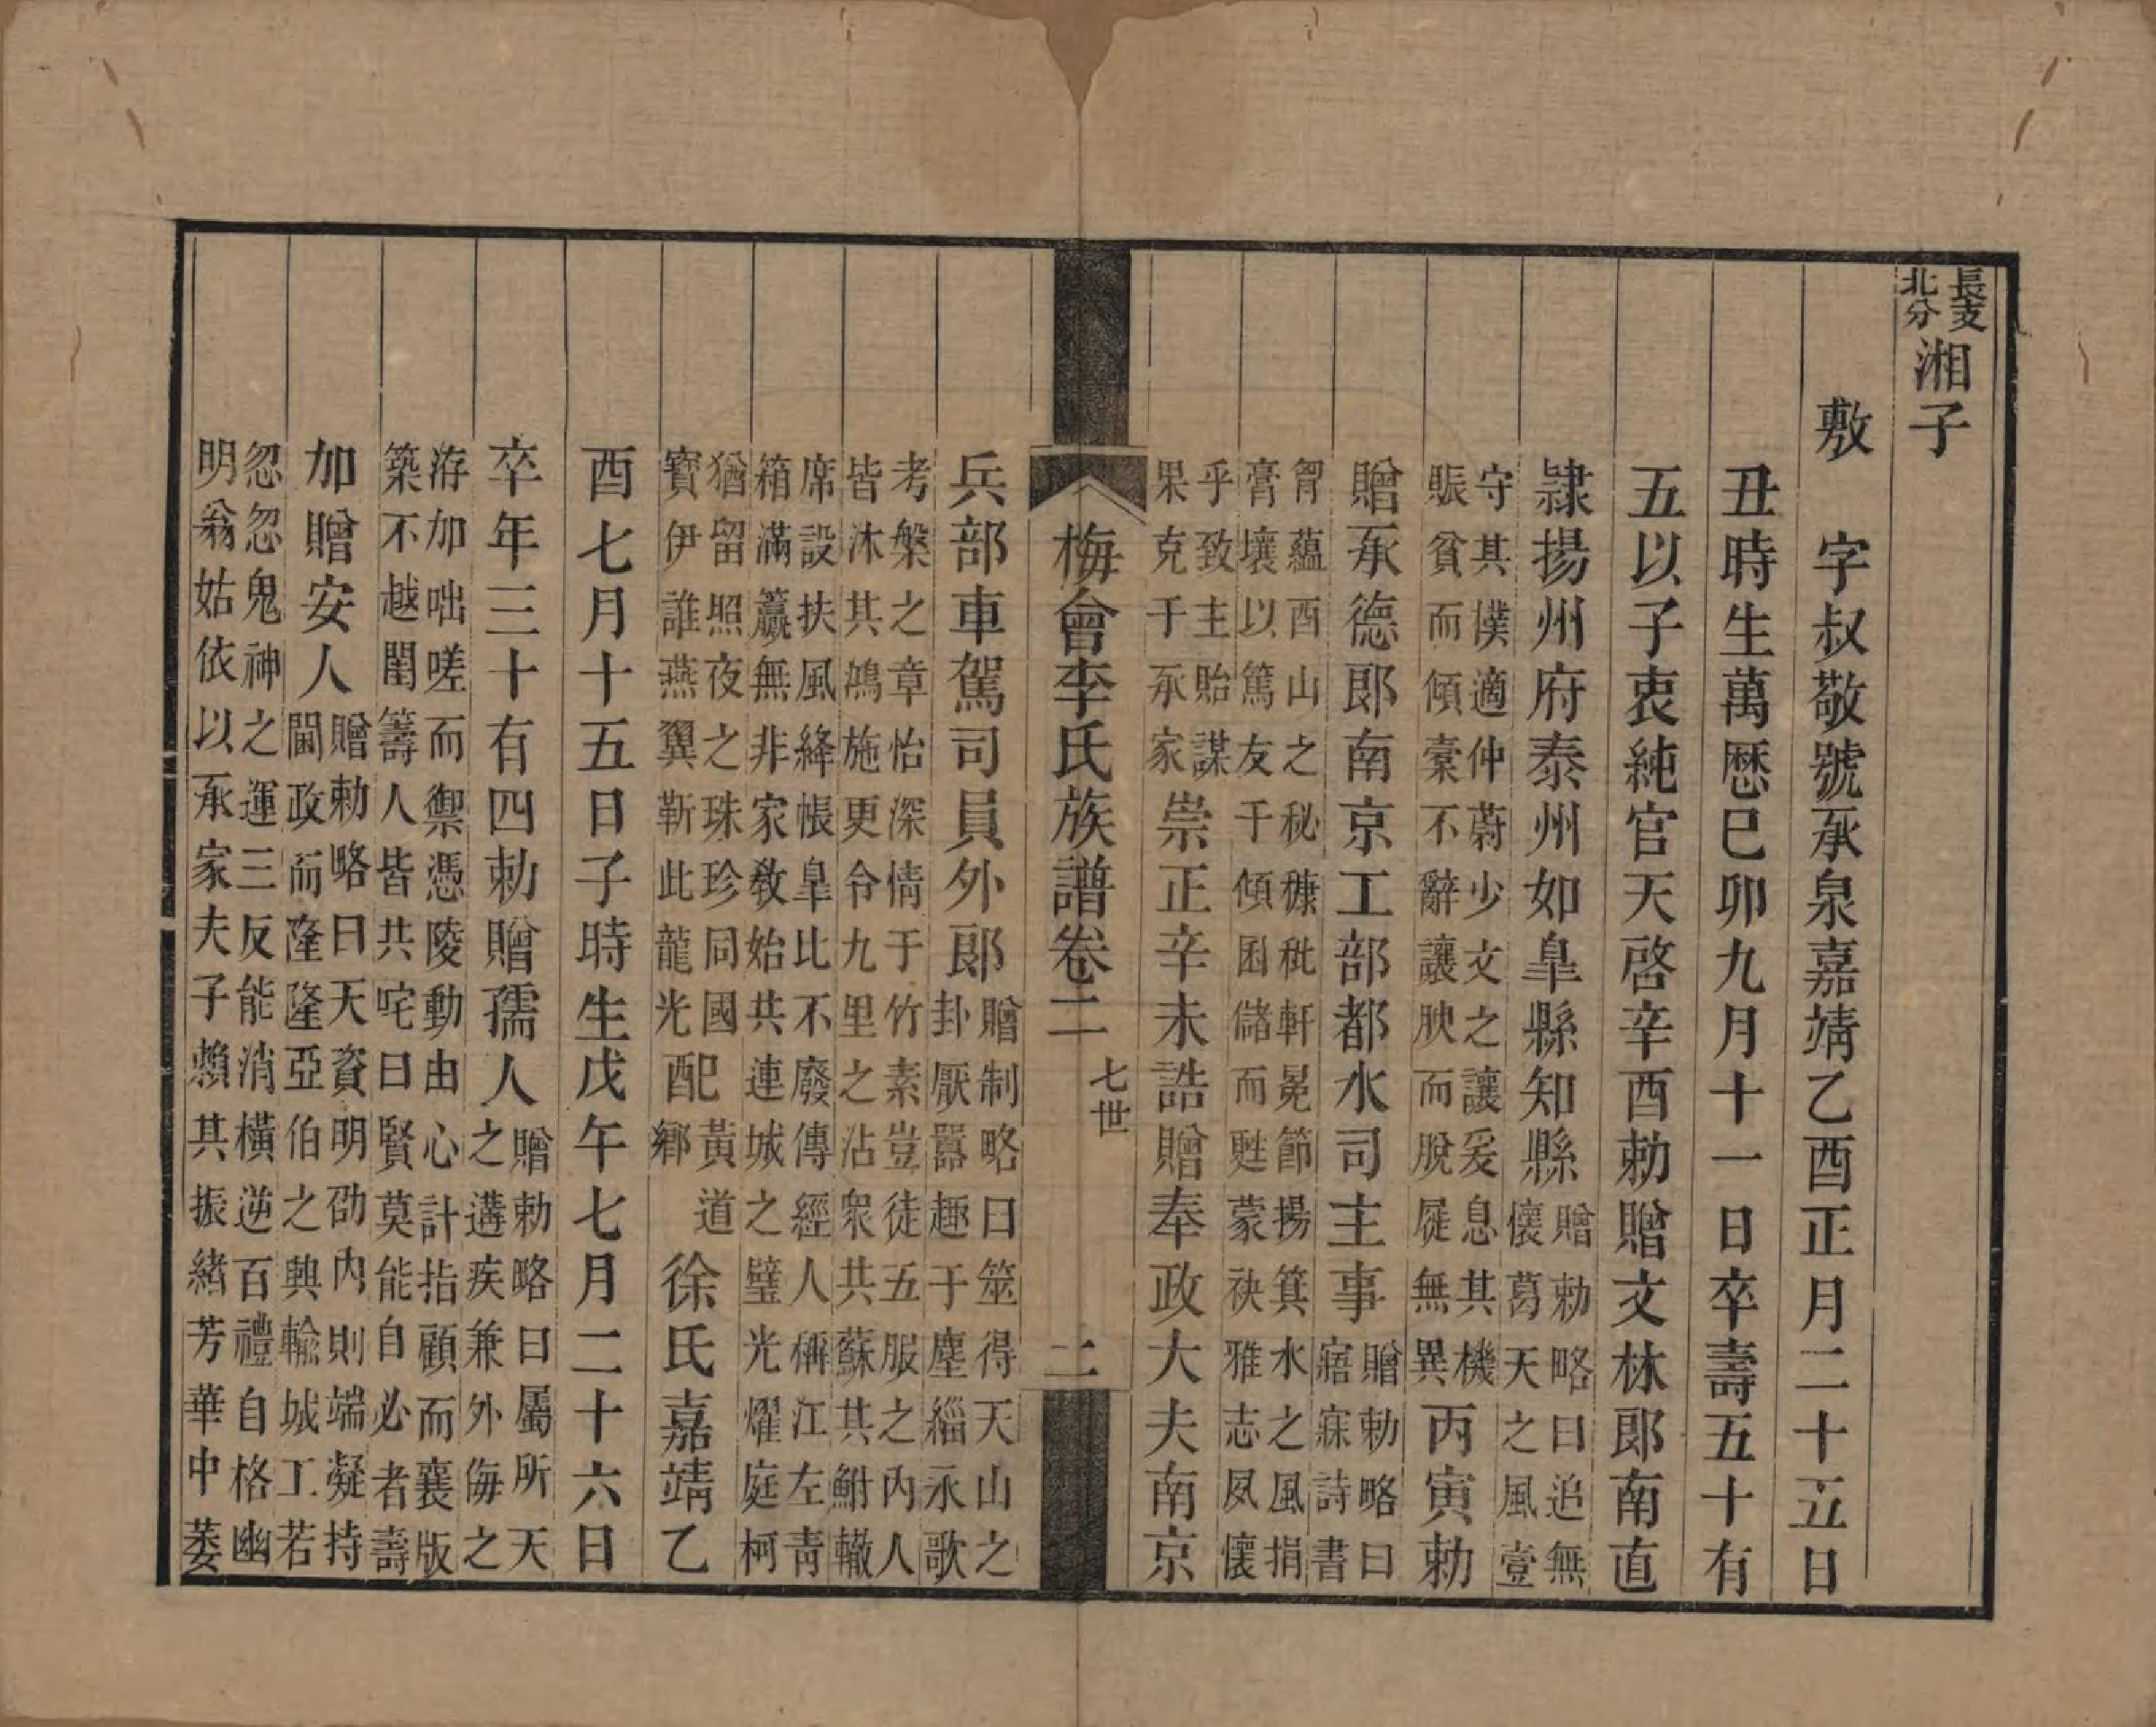 長支
北分
湘子
敷　字叔敬號承泉嘉靖乙酉正月二十五日
丑時生萬歷巳卯九月十一日卒壽五十有
五以子衷純官天啓辛酉勅贈文林郎南直
隷揚州府泰州如臯縣知縣
贈勅略曰追無
懷葛天之風壹
守其樸適仲蔚少文之讓爰息其機
賑貧而傾橐不辭讓腴而脫屣無異
丙寅勅
贈承德郎南京工部都水司主事
贈勅略曰
寤寐詩書
胷蘊酉山之秘糠秕軒冕節揚箕水之風捐
膏壤以篤友千傾囷儲而甦蒙袂雅志夙懷
乎致主貽謀
果克于承家
崇正辛未誥贈奉政大夫南京
梅會李氏族譜卷二　七世　二
兵部車駕司員外郎
贈制略曰筮得天山之
卦厭囂趣于塵緇永歌
考槃之章怡深情于竹素豈徒五服之內人
皆沐其鴻施更令九里之沾衆共蘇其鮒轍
席設扶風絳帳臯比不廢傳經人稱江左靑
箱滿籯無非家敎始共連城之璧光燿庭柯
猶留照夜之珠珍同國
寶伊誰燕翼靳此龍光
配
黃道
鄉
徐氏嘉靖乙
酉七月十五日子時生戊午七月二十六日
卒年三十有四勅贈孺人
贈勅略曰屬所天
之遘疾兼外侮之
洊加咄嗟而禦憑陵動由心計指顧而襄版
築不越閨籌人皆共咤曰賢莫能自必者壽
加贈安人
贈勅略曰天資明劭內則端凝持
閫政而隆隆亞伯之興輸城工若
忽忽鬼神之運三反能消橫逆百禮自格幽
明翁姑依以承家夫子賴其振緒芳華中萎